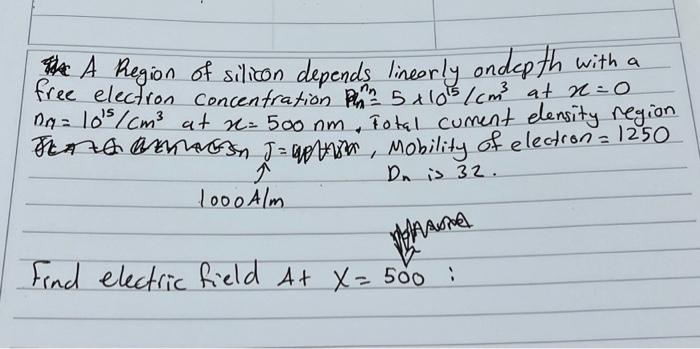 A Region of silicon depends linearly ondepth with a
free electron concentration nn = 5 x 10^15/cm^3 at x = 0
nn = 10^15/cm^3 at x = 500 nm. Total current density region
J = , Mobility of electron = 1250
1000 A/m Dn is 32.
Find electric field At X = 500 :